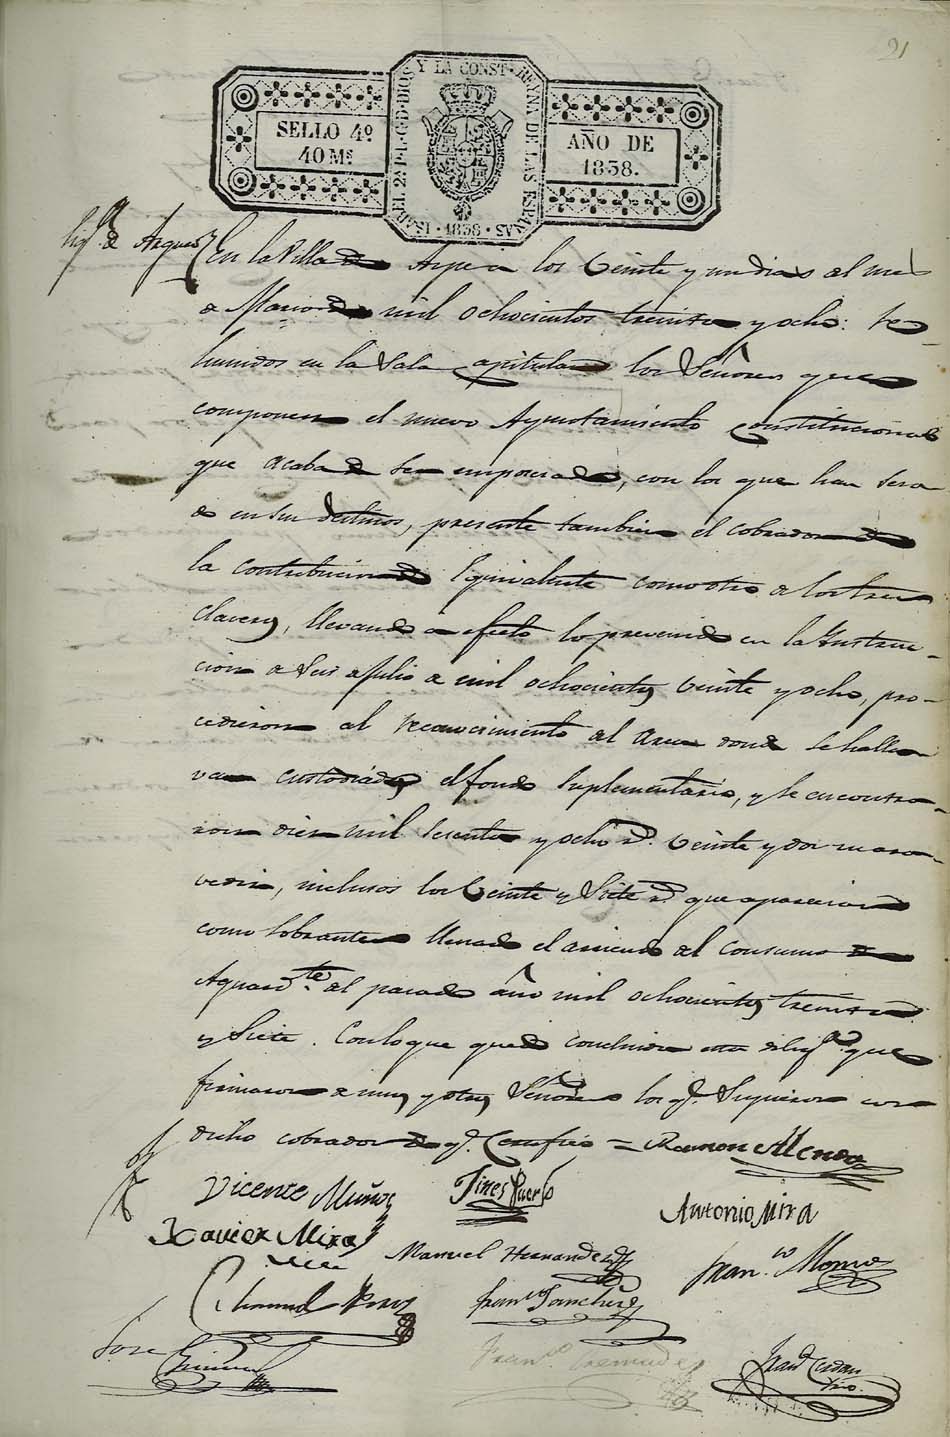 21
ISABEL 2ª P. L. G. D. DIOS Y LA CONST. REYNA DE LAS ESPAÑAS
SELLO 4º
40 Ms
AÑO DE
1838.
1838
de Arqueo
En la Villa de Aspe a los Veinte y un dias del mes
de Marzo de mil ochocientos treinta y ocho: Re-
hunidos en la Sala Capitular los Señores que
componen el nuevo Ayuntamiento Constitucional
que acaba de ser, con los que han
en sus destinos, presente tambien el cobrador de
la contribucion de Equivalente como otro de los tres
Claveros, llevando a efecto lo prevenido en la Ynstruc-
cion de Seis de Julio de mil ochocientos Veinte y ocho, pro-
cedieron al reconocimiento del Arca donde se halla-
van custodiados el fondo Suplementario, y se encontra-
ron diez mil sesenta y ocho rs. Veinte y dos mara-
vedis, inclusos los Veinte y Siete rs. que aparecieron
como sobrantes el arriendo del consumo de
Aguardte. del pasado año mil ochocientos treinta
y Siete. Con lo que quedo concluida esta diliga. que
firmaron dichos Señores los q. Supieron con
dicho cobrador de q. Certifico = Ramon Alenda
Vicente Muñoz
Gines Puerto
Antonio Mira
Xavier Mira
Manuel Hernandez
Franco.
Perez
Franco. Sanchez
Jose
Franco.
Franco. Cerdan
Srio.